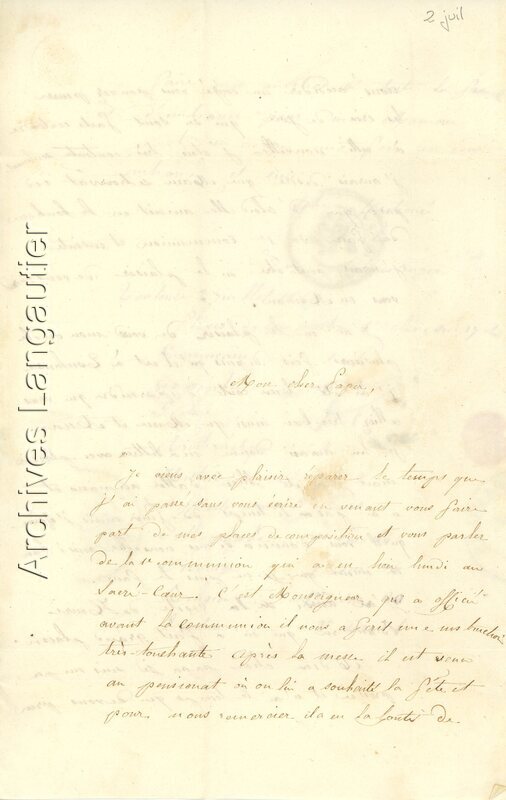 2 juil
Archives Langautier
Mon cher Papa,
Je viens avec plaisir réparer le temps que
j'ai passé sans vous écrire en venant vous faire
part de mes places de composition et vous parler
de la 1re communion qui a eu lieu lundi au
Sacré-Cœur. C'est Monseigneur qui a officié
avant la communion il nous a fait une instruction
très touchante après la messe il est venu
au pensionat où on lui a souhaité la fête et
pour nous remercier il a eu la bonté de